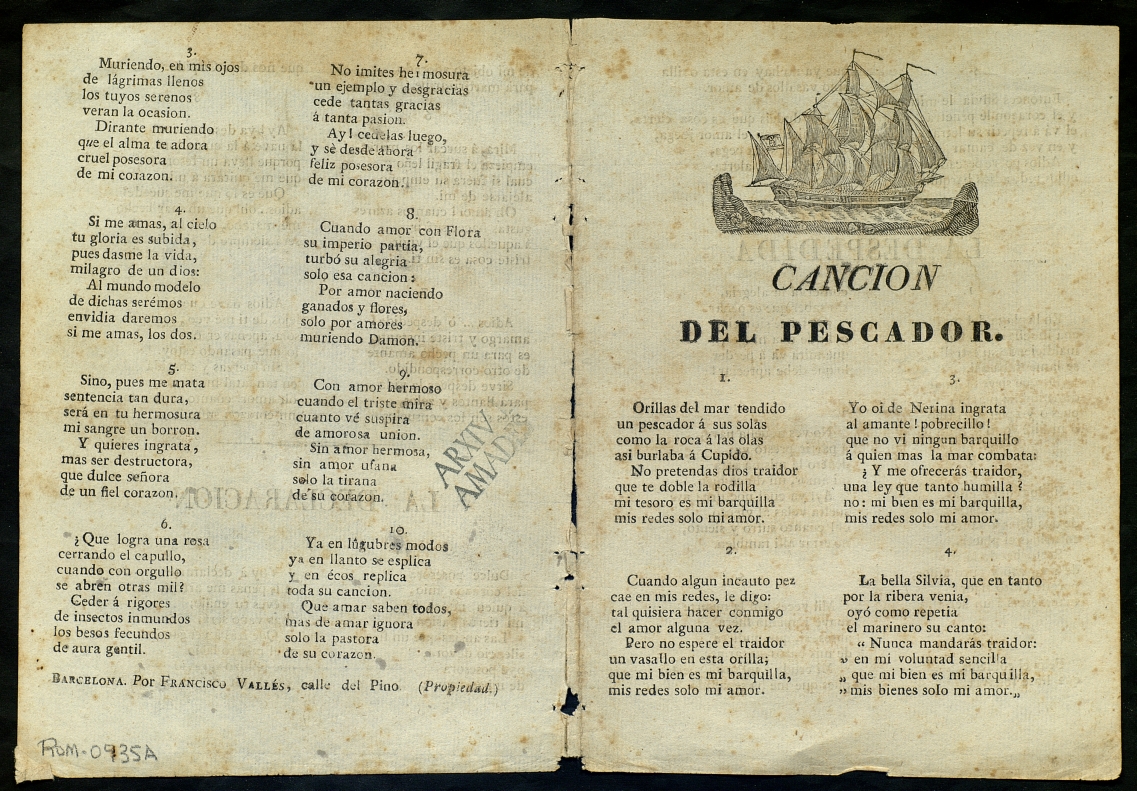 3.
Muriendo, en mis ojos
de lágrimas llenos
los tuyos serenos
veran la ocasion.
Dirante muriendo
que el alma te adora
cruel posesora
de mi corazon.
4.
Si me amas, al cielo
tu gloria es subida,
pues dasme la vida,
milagro de un dios:
Al mundo modelo
de dichas serémos
envidia daremos
si me amas, los dos.
5.
Sino, pues me mata
sentencia tan dura,
será en tu hermosura
mi sangre un borron.
Y quieres ingrata,
mas ser destructora,
que dulce señora
de un fiel corazon.
6.
¿Que logra una rosa
cerrando el capullo,
cuando con orgullo
se abren otras mil?
Ceder á rigores
de insectos inmundos
los besos fecundos
de aura gentil.
7.
No imites hermosura
un ejemplo y desgracias
cede tantas gracias
á tanta pasion.
Ay! luego,
y sé desde ahora
feliz posesora
de mi corazon.
8.
Cuando amor con Flora
su imperio partia,
turbó su alegria
solo esa cancion:
Por amor naciendo
ganados y flores,
solo por amores
muriendo Damon.
9.
Con amor hermoso
cuando el triste mira
cuanto vé suspira
de amorosa union.
Sin amor hermosa,
sin amor ufana
solo la tirana
de su corazon.
10.
Ya en lúgubres modos
ya en llanto se esplica
y en écos replica
toda su cancion.
Que amar saben todos,
mas de amar ignora
solo la pastora
de su corazon.
BARCELONA. Por FRANCISCO VALLÉS, calle del Pino. (Propiedad.)
ROM-0935A
ARXIV
AMADES
CANCION
DEL PESCADOR.
1.
Orillas del mar tendido
un pescador á sus solas
como la roca á las olas
asi burlaba á Cupido.
No pretendas dios traidor
que te doble la rodilla
mi tesoro es mi barquilla
mis redes solo mi amor.
2.
Cuando algun incauto pez
cae en mis redes, le digo:
tal quisiera hacer conmigo
el amor alguna vez.
Pero no espere el traidor
un vasallo en esta orilla;
que mi bien es mi barquilla,
mis redes solo mi amor.
3.
Yo oi de Nerina ingrata
al amante! pobrecillo!
que no vi ningun barquillo
á quien mas la mar combata:
¿Y me ofrecerás traidor,
una ley que tanto humilla?
no: mi bien es mi barquilla,
mis redes solo mi amor.
4.
La bella Silvia, que en tanto
por la ribera venia,
oyó como repetia
el marinero su canto:
“ Nunca mandarás traidor:
„ en mi voluntad sencilla
„ que mi bien es mi barquilla,
„ mis bienes solo mi amor.„